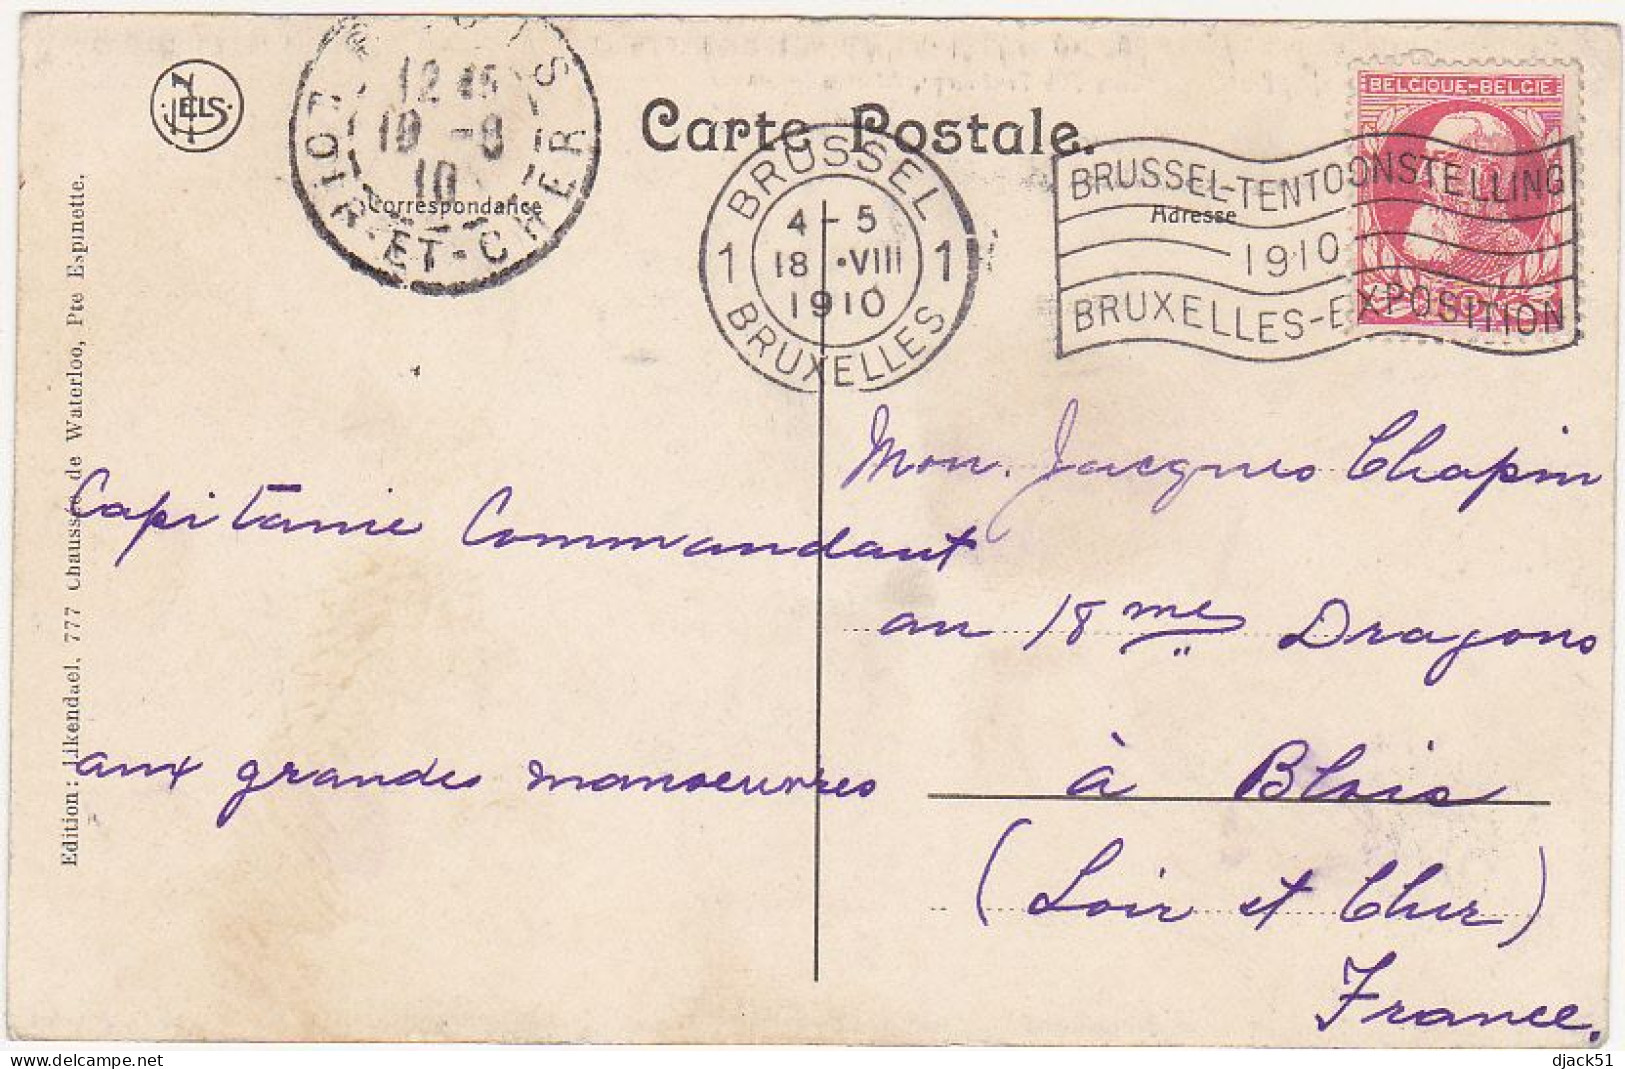 NELS
BLOIS
12 45
19 -8
10
LOIR-ET-CHER
Carte Postale.
Correspondance
BRUSSEL
4 - 5
1 18 •VIII 1
1910
BRUXELLES
BELGIQUE-BELGIE
BRUSSEL-TENTOONSTELLING
1910
BRUXELLES-EXPOSITION
Adresse
Edition : Likendael. 777 Chaussée de Waterloo, Pte Espinette.
Mon. Jacques Chapin
Capitanie Commandant
au 18me Dragons
aux grandes manoeuvres
à Blois
(Loir et Cher)
France.
delcampe.net
djack51